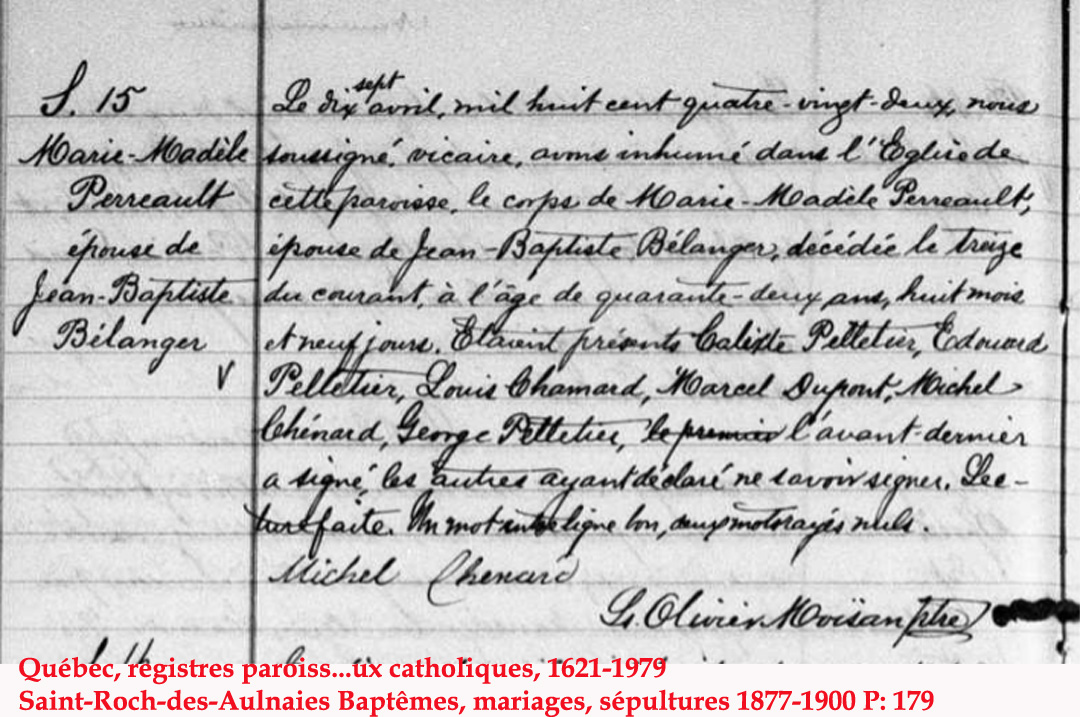 S. 15
Marie-Madèle
Perreault
épouse de
Jean-Baptiste
Bélanger
V
Le dix sept avril, mil huit cent quatre-vingt-deux, nous
soussigné, vicaire, avons inhumé dans l'Eglise de
cette paroisse, le corps de Marie-Madèle Perreault,
épouse de Jean-Baptiste Bélanger, décédée le treize
du courant, à l'âge de quarante-deux ans, huit mois
et neuf jours. Etaient présents Calixte Pelletier, Edouard
Pelletier, Louis Chamard, Marcel Dupont, Michel
Chénard, George Pelletier, le premier l'avant-dernier
a signé, les autres ayant déclaré ne savoir signer. Lec-
ture faite. Un mot entreligne bon, deux mots rayés nuls.
Michel Chenard
Ls. Olivier Moïsan ptre
Québec, registres paroiss...ux catholiques, 1621-1979
Saint-Roch-des-Aulnaies Baptêmes, mariages, sépultures 1877-1900 P: 179